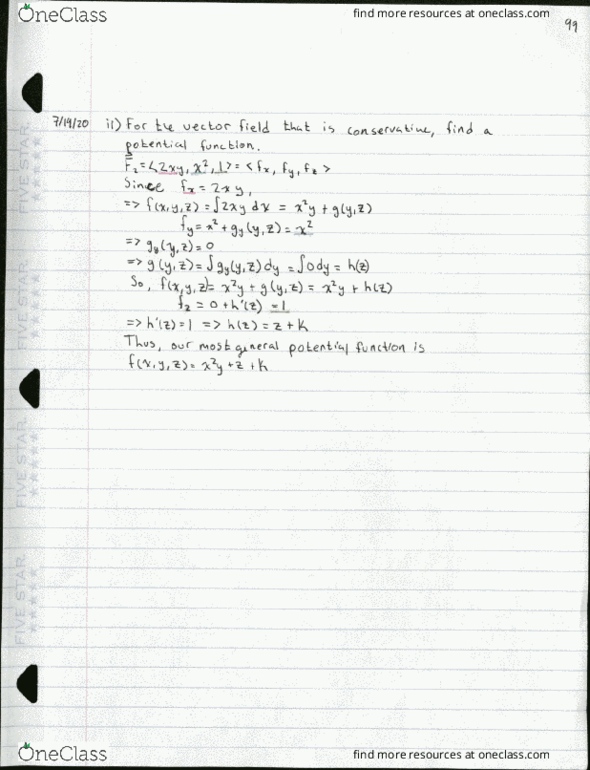 OneClass
find more resources at oneclass.com
99
7/19/20 ii) For the vector field that is conservative, find a
potential function.
F₂ = <2xy, x², 1> = <fx, fy, fz>
Since fx = 2xy,
=> f(x,y,z) = ∫2xy dx = x²y + g(y,z)
fy = x² + gy(y,z) = x²
=> gy(y,z) = 0
=> g(y,z) = ∫gy(y,z) dy = ∫0 dy = h(z)
So, f(x,y,z) = x²y + g(y,z) = x²y + h(z)
fz = 0 + h'(z) = 1
=> h'(z) = 1 => h(z) = z + k
Thus, our most general potential function is
f(x,y,z) = x²y + z + k
FIVE STAR
FIVE STAR
FIVE STAR
OneClass
find more resources at oneclass.com